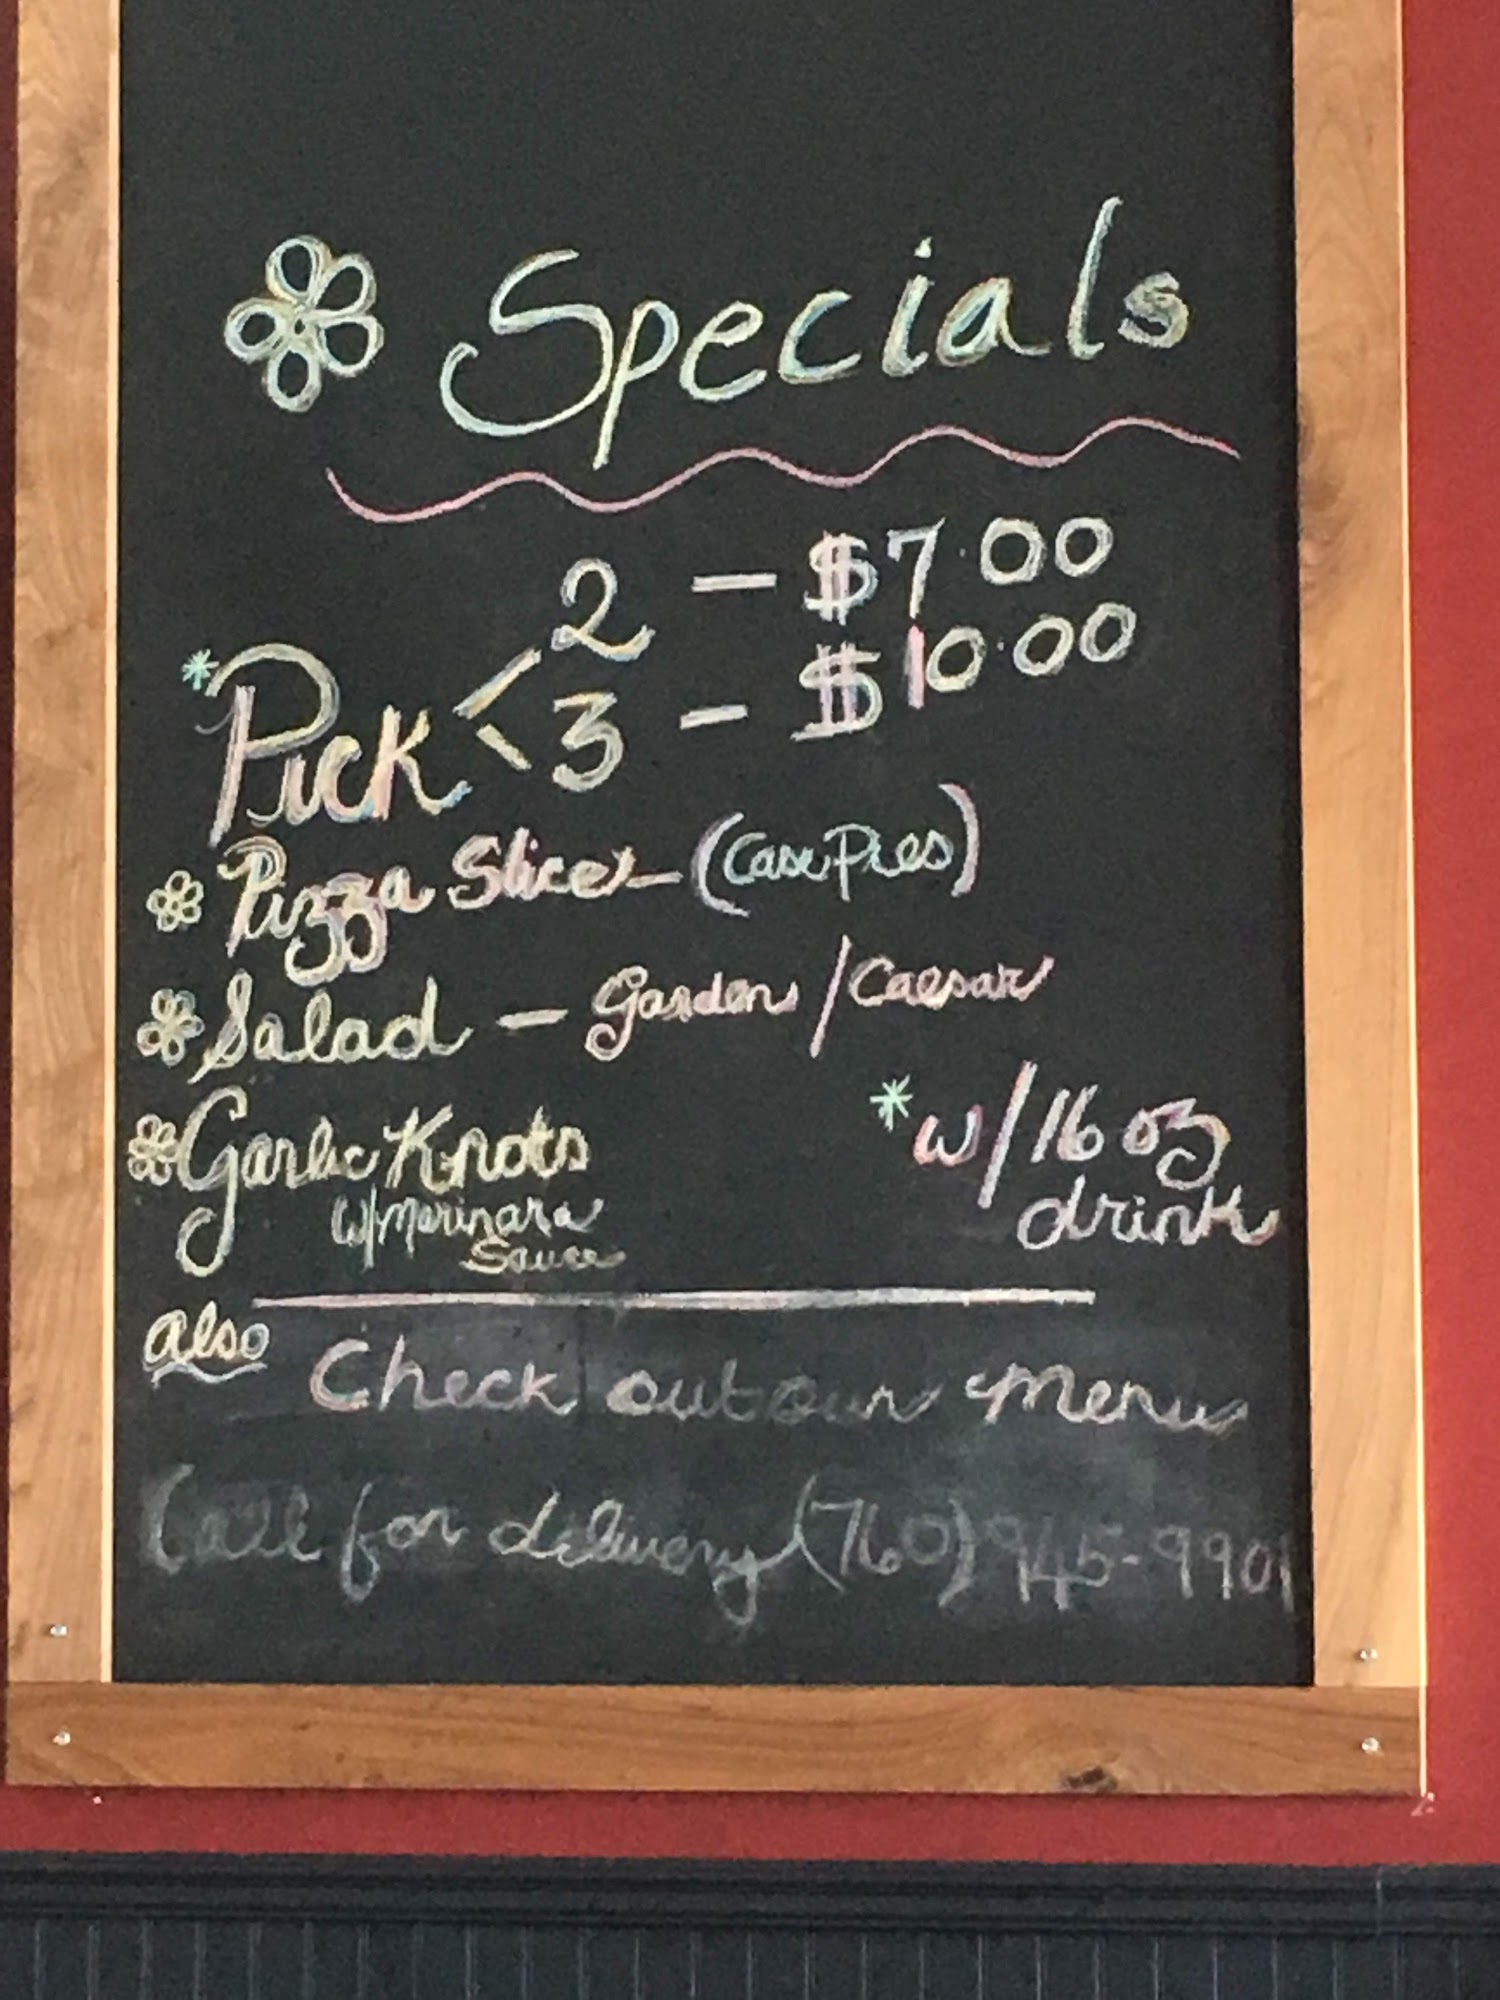 Specials
2 - $7.00
*Pick < 3 - $10.00
Pizza Slice - (Case Pies)
Salad - Garden / Caesar
Garlic Knots
w/Marinara
Sauce
*w/16 oz
drink
also
Check out our menu
Call for delivery (760) 945-9901